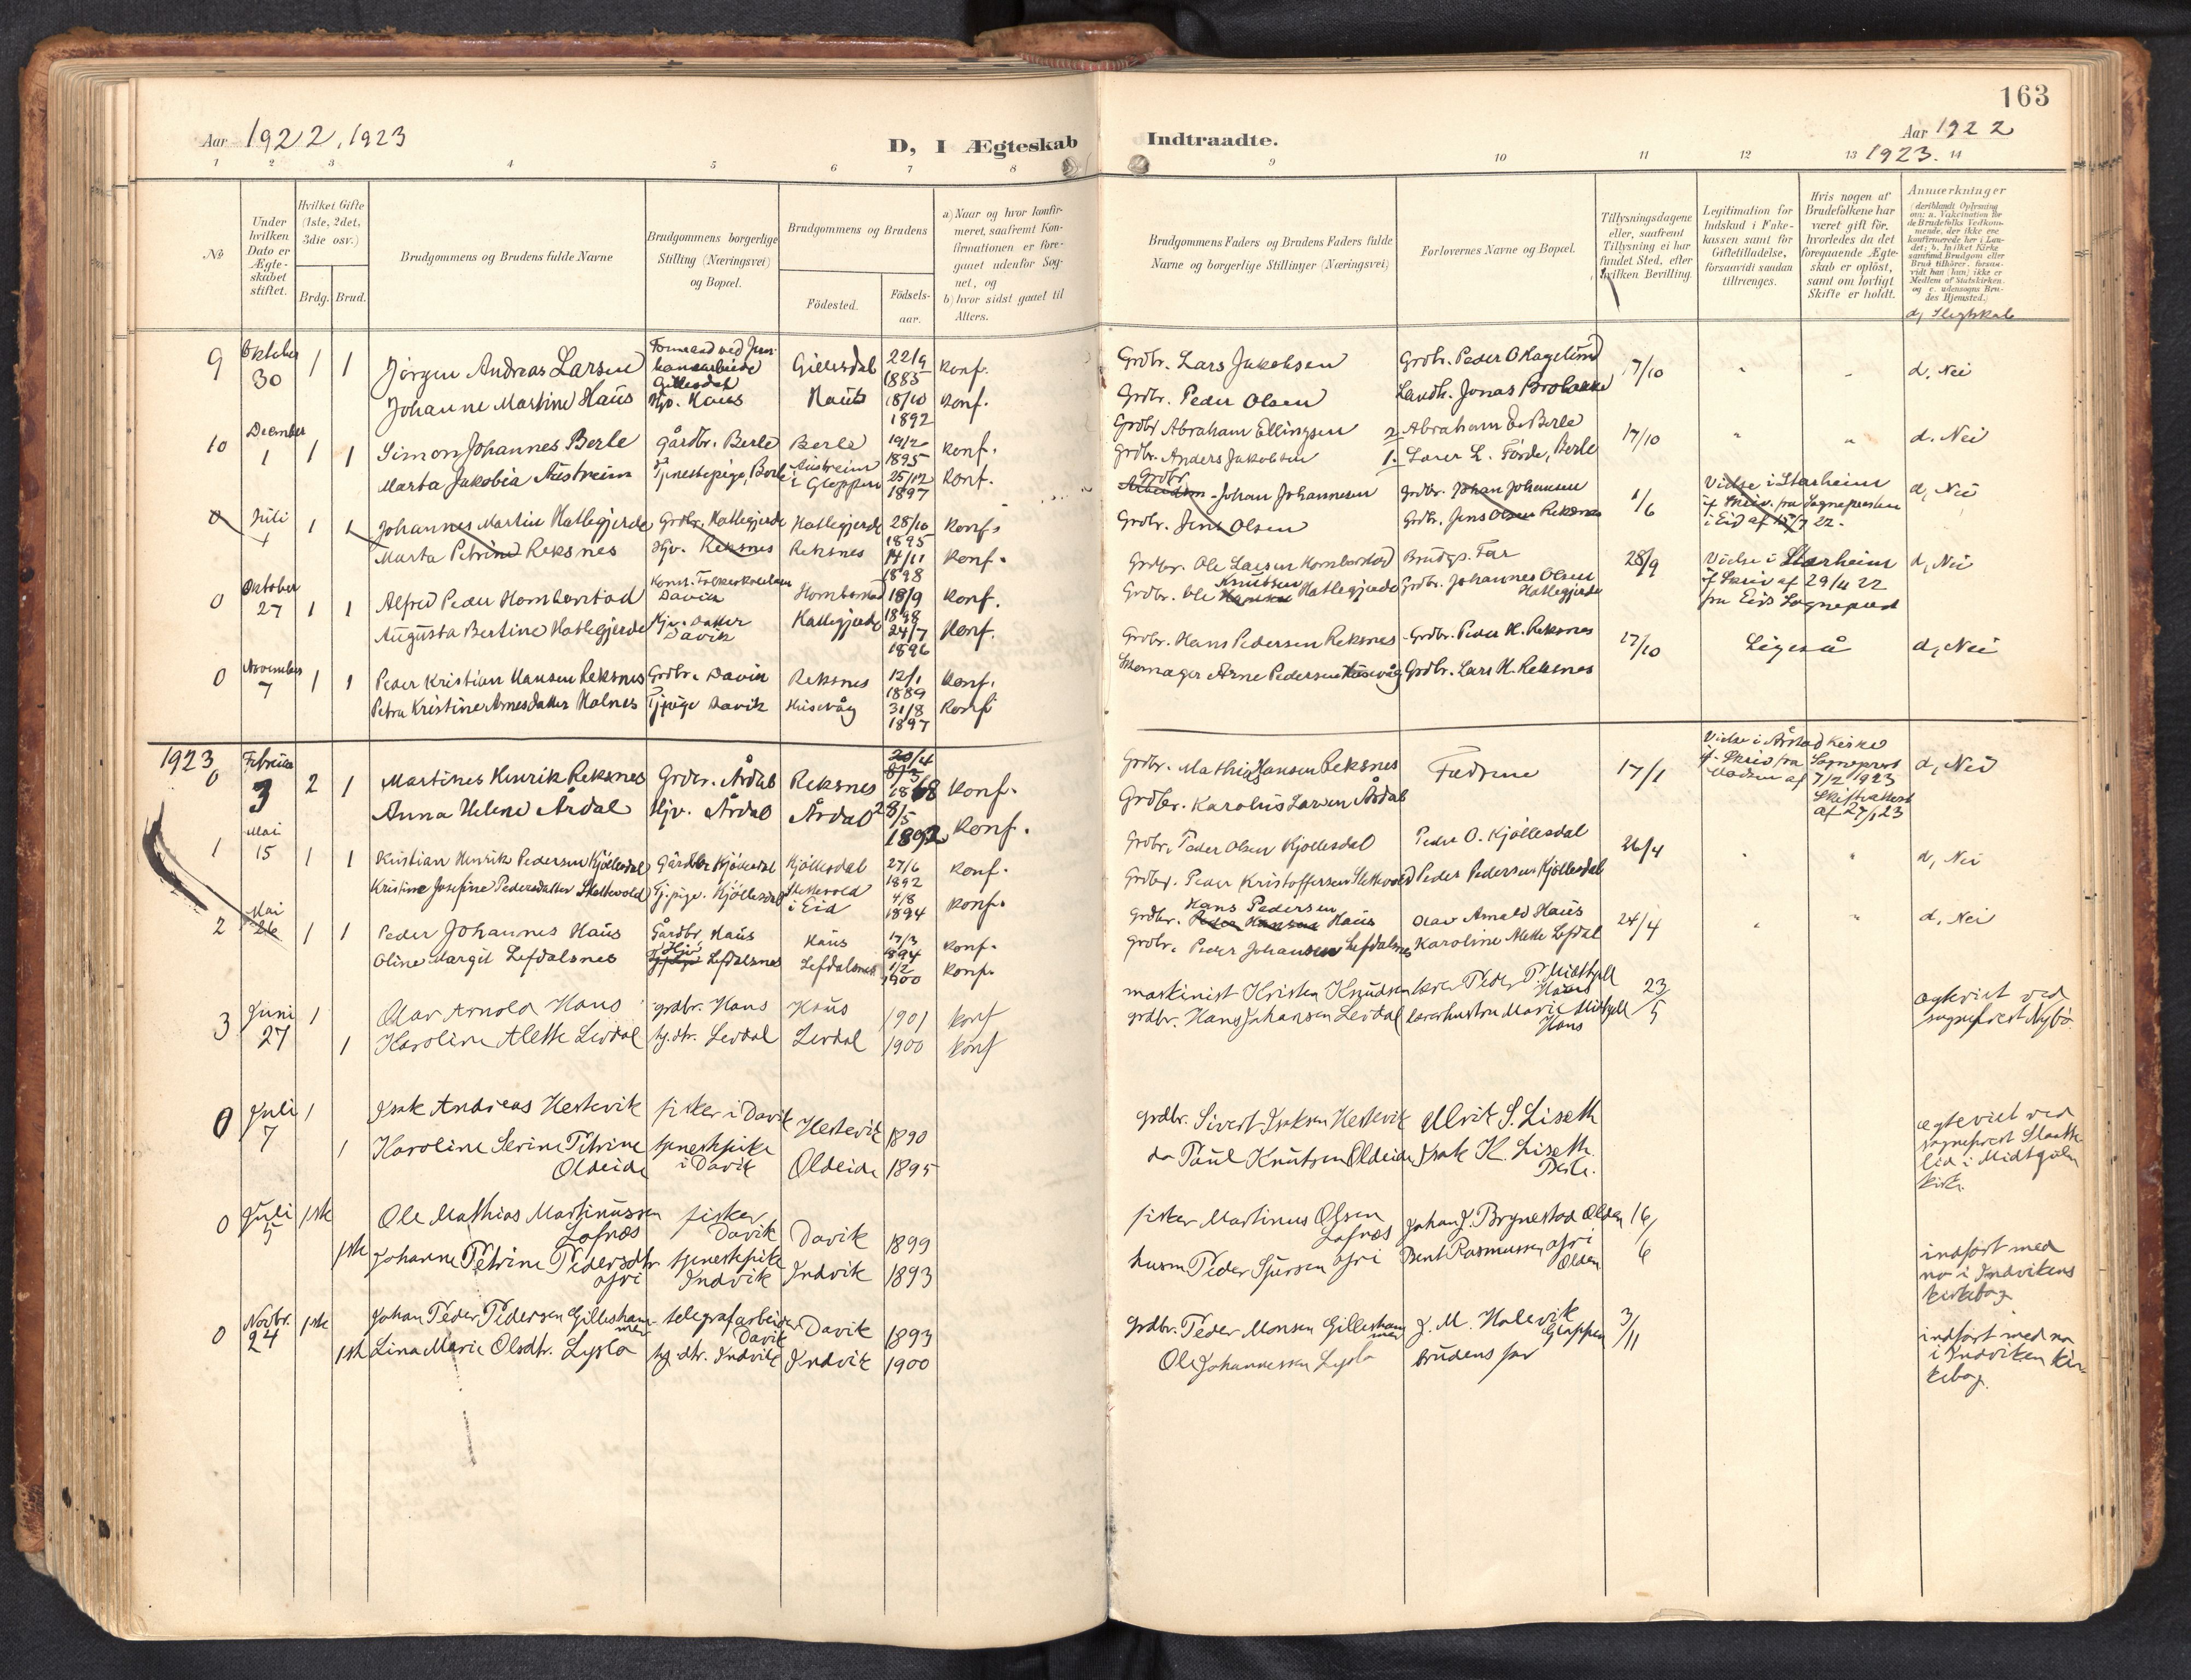 163
Aar 1922, 1923
D, I Ægteskab
Indtraadte.
Aar 1922
1923.
1 2 3 4 5 6 7 8
9 10 11 12 13 14
No
Under hvilken Dato er Ægteskabet stiftet.
Hvilket Gifte (1ste, 2det, 3die osv.)
Brdg. Brud.
Brudgommens og Brudens fulde Navne
Brudgommens borgerlige Stilling (Næringsvei) og Bopæl.
Brudgommens og Brudens
Födested.
Födselsaar.
a) Naar og hvor konfirmeret, saafremt Konfirmationen er foregaaet udenfor Sognet, og
b) hvor sidst gaaet til Alters.
Brudgommens Faders og Brudens Faders fulde Navne og borgerlige Stillinger (Næringsvei)
Forlovernes Navne og Bopæl.
Tillysningsdagene eller, saafremt Tillysning ei har fundet Sted, efter hvilken Bevilling.
Legitimation for Indskud i Enkekassen samt for Giftetilladelse, forsaavidt saadan tiltrænges.
Hvis nogen af Brudefolkene har været gift før, hvorledes da det foregaaende Ægteskab er oplöst, samt om lovligt Skifte er holdt.
Anmærkninger
(deriblandt Oplysning om: a. Vakcination for de Brudefolks Vedkommende, der ikke ere konfirmerede her i Landet; b. hvilket Kirkesamfund Brudgom eller Brud tilhörer, forsaavidt han (hun) ikke er Medlem af Statskirken, og c. udensogns Brudes Hjemsted.)
d, Slegtskab
9 Oktober 30 1 1 Jörgen Andreas Larsen Formand ved Jernbanearbeide Gillesdal Gillesdal 22/9 1885 konf.
Johanne Martine Haus Hjv. Haus Haus 18/10 1892 konf.
Grdbr. Lars Jakobsen Grdbr. Peder O Hagelund 17/10 " " d. Nei
Grdbr. Peder Olsen Landh. Jonas Brobakke
10 December 1 1 1 Simon Johannes Berle Gårdbr. Berle Berle 19/2 1895 konf.
Marta Jakobia Austreim Tjenestepige, Berle Austreim i Gloppen 25/12 1897 konf.
Grdbr Abraham Ellingsen 2. Abraham E. Berle 17/10 " " d. Nei
Grdbr. Anders Jakobsen 1. Larer L. Förde, Berle
0 Juli 1 1 1 Johannes Martin Hatlegjerde Grdbr. Hatlegjerde Hatlegjerde 28/10 1895 konf.
Marta Petrine Reksnes Hjv. Reksnes Reksnes 14/11 1898 konf.
Grdbr Johan Johannesen Grdbr. Johan Johansen 1/6 Vielse i Starheim if Skriv. fra Sognepresten i Eid af 22. d, Nei
Grdbr. Jens Olsen Grdbr. Jens Olsen Reksnes
0 Oktober 27 1 1 Alfred Peder Hombarstad Davik Hombarstad 18/9 1898 konf.
Augusta Bertine Hatlegjerde Hjv. datter Davik Hatlegjerde 24/7 1896 konf.
Grdbr. Ole Larsen Hombarstad Brudgs. Far 28/9 Vielse i Starheim if Skriv af 29/4 22 fra Eids Sogneprest d, Nei
Grdbr. Ole Knutsen Hatlegjerde Grdbr. Johannes Olsen Hatlegjerde
0 November 7 1 1 Peder Kristian Hansen Reksnes Grdbr. Davik Reksnes 12/1 1889 konf.
Petra Kristine Arnesdatter Holnes Tj.pige Davik Husevåg 31/8 1897 konf
Grdbr. Hans Pedersen Reksnes Grdbr. Peder H. Reksnes 27/10 Ligeså d, Nei
Skomager Arne Pedersen Husevåg Grdbr. Lars H. Reksnes
1923
0 Februar 3 2 1 Martines Henrik Reksnes Grdbr. Årdal Reksnes 8/3 1868 konf.
Anna Helene Årdal Hjv. Årdal Årdal 28/5 1892 konf.
Grdbr. Mathias Hansen Reksnes Fædrene 17/1 Vielse i Årstad kirke if. Skriv fra Sogneprest Madsen af 7/2 1923 Skifteattest af 27/1 23 d, Nei
Grdbr. Karolus Larsen Årdal
1 Mai 15 1 1 Kristian Henrik Pedersen Kjöllesdal Gårdbr Kjöllesdal Kjöllesdal 27/6 1892 konf.
Kristine Josefine Pedersdatter Stettevold Tj.pige. Kjöllesdal Stettevold i Eid 4/8 1894 konf.
Grdbr. Peder Olsen Kjöllesdal Peder O. Kjöllesdal 26/4 " " d, Nei
Grdbr. Peder Kristoffersen Stettevold Peder Pedersen Kjöllesdal
2 Mai 26 1 1 Peder Johannes Haus Gårdbr Haus Haus 17/3 1894 konf.
Oline Margit Lefdalsnes Hjv Lefdalsnes Lefdalsnes 1/2 1900 konf.
Grdbr. Hans Pedersen Haus Olav Arnold Haus 24/4 " " d. Nei
Grdbr. Peder Johansen Lefdalsnes Karoline Alette Lefdal
3 Juni 27 1 Olav Arnold Haus grdbr. Haus Haus 1901 konf
1 Karoline Alette Levdal hj.dtr. Levdal Levdal 1900 konf
maskinist Kristen Knudsen lærer Peder P. Midthjell Haus 23/5 egteviet ved sogneprest Nybö.
grdbr. Hans Johansen Levdal lærerhustru Marie Midthjell Haus
0 Juli 7 1 Isak Andreas Hestevik fisker i Davik Hestevik 1890
1 Karoline Serine Petrine Oldeide tjenestpike i Davik Oldeide 1895
grdbr. Sivert Isaksen Hestevik Ulrik S. Liseth egteviet ved sogneprest i Midtgulen kirke.
do Paul Knutsen Oldeide Isak K. Liseth
0 Juli 5 1ste Ole Mathias Martinussen Lofnæs fisker Davik Davik 1899
1ste Johanne Petrine Pedersdtr. öfri tjenestpike Indvik Indvik 1893
fisker Martinus Olsen Lofnæs Johan J. Brynestad Olden 16/6 indfört med no i Indvikens kirkebog
husm Peder Sjursen öfri Bent Rasmussen öfri Olden
0 Novbr. 24 1ste Johan Peder Pedersen Gilleshammer telegrafarbeider Davik Davik 1893
1ste Lina Marie Olsdtr. Lyslo hj.dtr. Indvik Indvik 1900
grdbr. Peder Monsen Gilleshammer J. M. Holevik Gloppen 3/11 indfört med no i Indviken kirkebog.
Ole Johannessen Lyslo brudens far